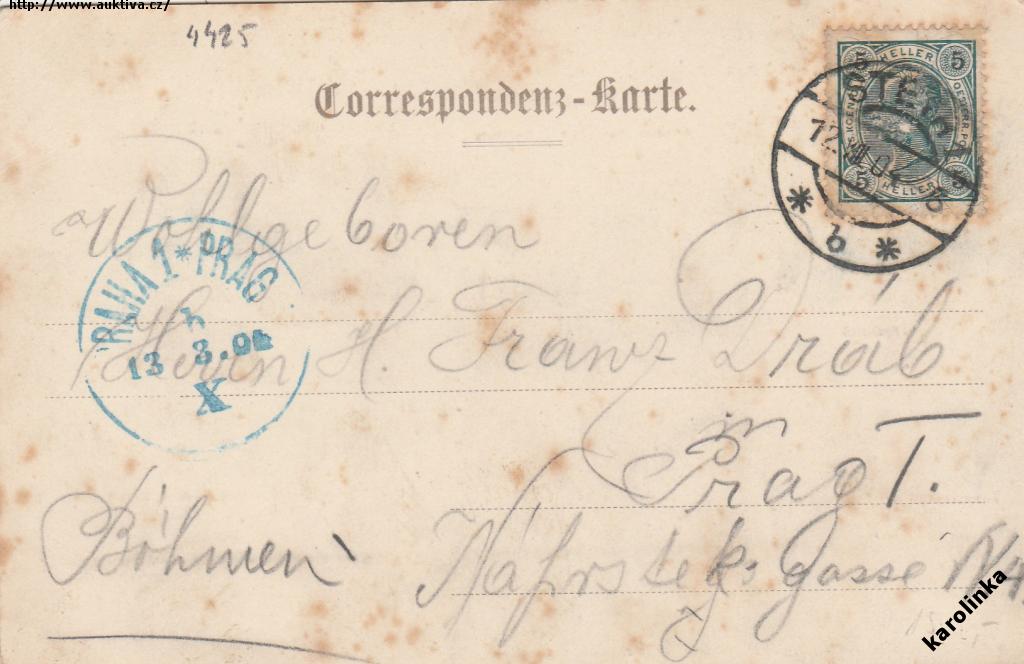 http://www.auktiva.cz/
4425
Correspondenz-Karte.
5 HELLER 5
5 HELLER 5
12. III. 04
* b *
Wohlgeboren
PRAHA 1 * PRAG
13 3.04
X
Herrn H. Franz Dráb
in
Prag I.
Böhmen
Náprstek. Gasse
karolinka